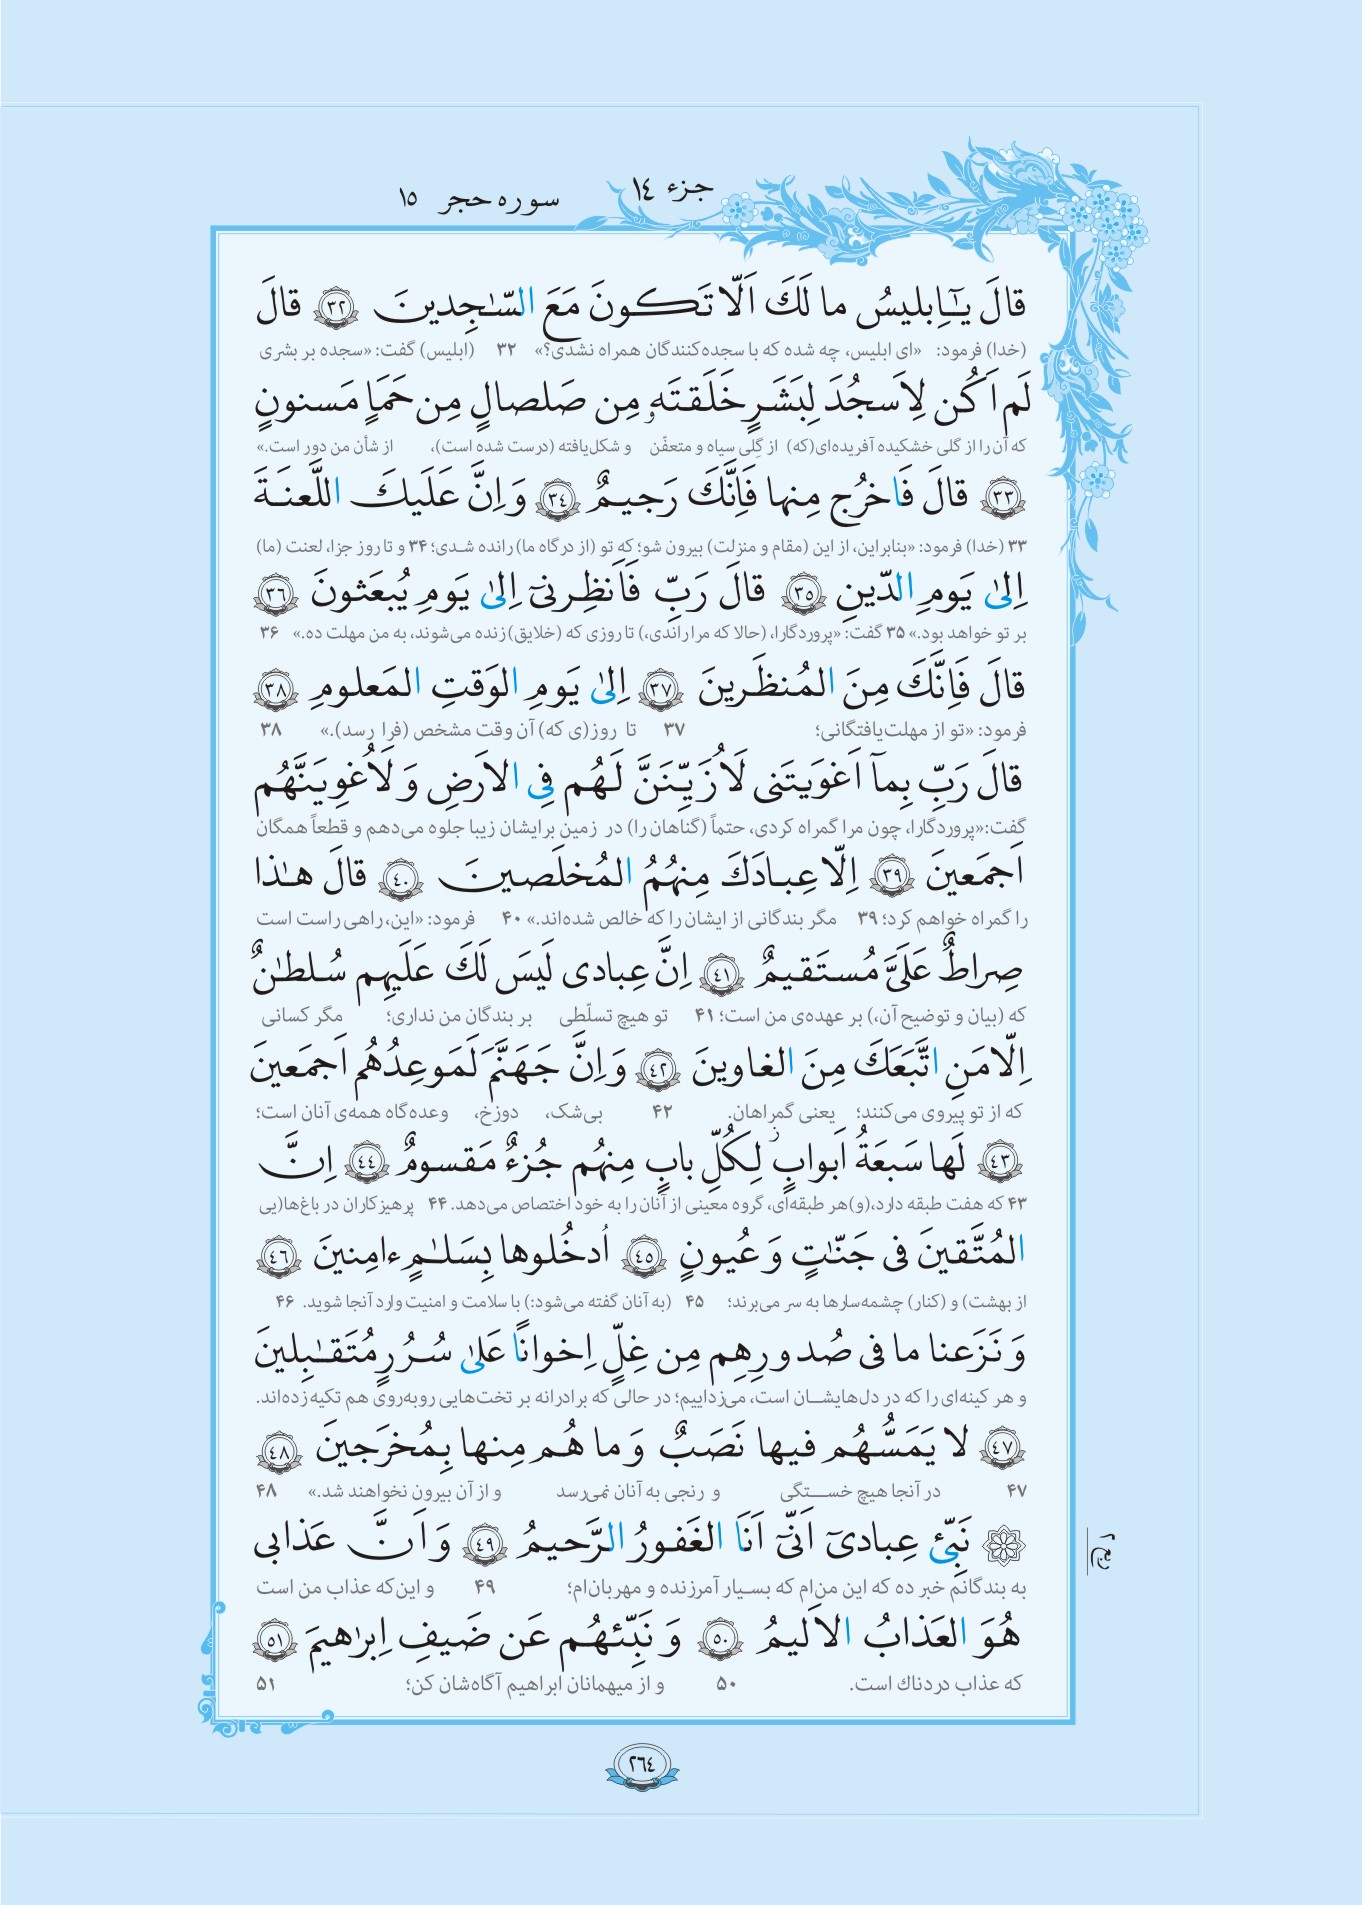 جزء ١٤
سوره حجر ١٥
قالَ يـٰٓاِبليسُ ما لَكَ اَلّا تَكونَ مَعَ السّـٰجِدينَ ٣٢ قالَ
(خدا) فرمود: «ای ابلیس، چه شده که با سجده‌کنندگان همراه نشدی؟» ۳۲ (ابلیس) گفت: «سجده بر بشری
لَم اَكُن لِاَسجُدَ لِبَشَرٍ خَلَقتَهو مِن صَلصالٍ مِن حَمَاٍ مَسنونٍ
که آن را از گلی خشکیده آفریده‌ای(که) از گِلی سیاه و متعفّن و شکل‌یافته (درست شده است)، از شأن من دور است.»
٣٣ قالَ فَاخرُج مِنها فَاِنَّكَ رَجيمٌ ٣٤ وَ اِنَّ عَلَيكَ اللَّعنَةَ
۳۳ (خدا) فرمود: «بنابراین، از این (مقام و منزلت) بیرون شو؛ که تو (از درگاه ما) رانده شدی؛ ۳۴ و تا روز جزا، لعنت (ما)
اِلىٰ يَومِ الدّينِ ٣٥ قالَ رَبِّ فَاَنظِرنىٓ اِلىٰ يَومِ يُبعَثونَ ٣٦
بر تو خواهد بود.» ۳۵ گفت: «پروردگارا، (حالا که مرا راندی،) تا روزی که (خلایق) زنده می‌شوند، به من مهلت ده.» ۳۶
قالَ فَاِنَّكَ مِنَ المُنظَرينَ ٣٧ اِلىٰ يَومِ الوَقتِ المَعلومِ ٣٨
فرمود: «تو از مهلت‌یافتگانی؛ ۳۷ تا روز(ی که) آن وقت مشخص (فرا رسد).» ۳۸
قالَ رَبِّ بِمآ اَغوَيتَنى لَاُزَيِّنَنَّ لَهُم فِى الاَرضِ وَ لَاُغوِيَنَّهُم
گفت:«پروردگارا، چون مرا گمراه کردی، حتماً (گناهان را) در زمین برایشان زیبا جلوه می‌دهم و قطعاً همگان
اَجمَعينَ ٣٩ اِلّا عِبادَكَ مِنهُمُ المُخلَصينَ ٤٠ قالَ هـٰذا
را گمراه خواهم کرد؛ ۳۹ مگر بندگانی از ایشان را که خالص شده‌اند.» ۴۰ فرمود: «این، راهی راست است
صِراطٌ عَلَىَّ مُستَقيمٌ ٤١ اِنَّ عِبادى لَيسَ لَكَ عَلَيهِم سُلطـٰنٌ
که (بیان و توضیح آن،) بر عهده‌ی من است؛ ۴۱ تو هیچ تسلّطی بر بندگان من نداری؛ مگر کسانی
اِلّا مَنِ اتَّبَعَكَ مِنَ الغاوينَ ٤٢ وَ اِنَّ جَهَنَّمَ لَمَوعِدُهُم اَجمَعينَ
که از تو پیروی می‌کنند؛ یعنی گمراهان. ۴۲ بی‌شک، دوزخ، وعده‌گاه همه‌ی آنان است؛
٤٣ لَها سَبعَةُ اَبوابٍ ز لِكُلِّ بابٍ مِنهُم جُزءٌ مَقسومٌ ٤٤ اِنَّ
۴۳ که هفت طبقه دارد،(و)هر طبقه‌ای، گروه معینی از آنان را به خود اختصاص می‌دهد. ۴۴ پرهیزکاران در باغ‌ها(یی
المُتَّقينَ فى جَنّـٰتٍ وَ عُيونٍ ٤٥ اُدخُلوها بِسَلـٰمٍ ءامِنينَ ٤٦
از بهشت) و (کنار) چشمه‌سارها به سر می‌برند؛ ۴۵ (به آنان گفته می‌شود:) با سلامت و امنیت وارد آنجا شوید. ۴۶
وَ نَزَعنا ما فى صُدورِهِم مِن غِلٍّ اِخوانًا عَلىٰ سُرُرٍ مُتَقـٰبِلينَ
و هر کینه‌ای را که در دل‌هایشان است، می‌زداییم؛ در حالی که برادرانه بر تخت‌هایی روبه‌روی هم تکیه زده‌اند.
٤٧ لا يَمَسُّهُم فيها نَصَبٌ وَ ما هُم مِنها بِمُخرَجينَ ٤٨
۴۷ در آنجا هیچ خستگی و رنجی به آنان نمی‌رسد و از آن بیرون نخواهند شد.» ۴۸
نَبِّئ عِبادىٓ اَنّىٓ اَنَا الغَفورُ الرَّحيمُ ٤٩ وَ اَنَّ عَذابى
به بندگانم خبر ده که این من‌ام که بسیار آمرزنده و مهربان‌ام؛ ۴۹ و این‌که عذاب من است
هُوَ العَذابُ الاَليمُ ٥٠ وَ نَبِّئهُم عَن ضَيفِ اِبرٰهيمَ ٥١
که عذاب دردناک است. ۵۰ و از میهمانان ابراهیم آگاه‌شان کن؛ ۵۱
٢٦٤